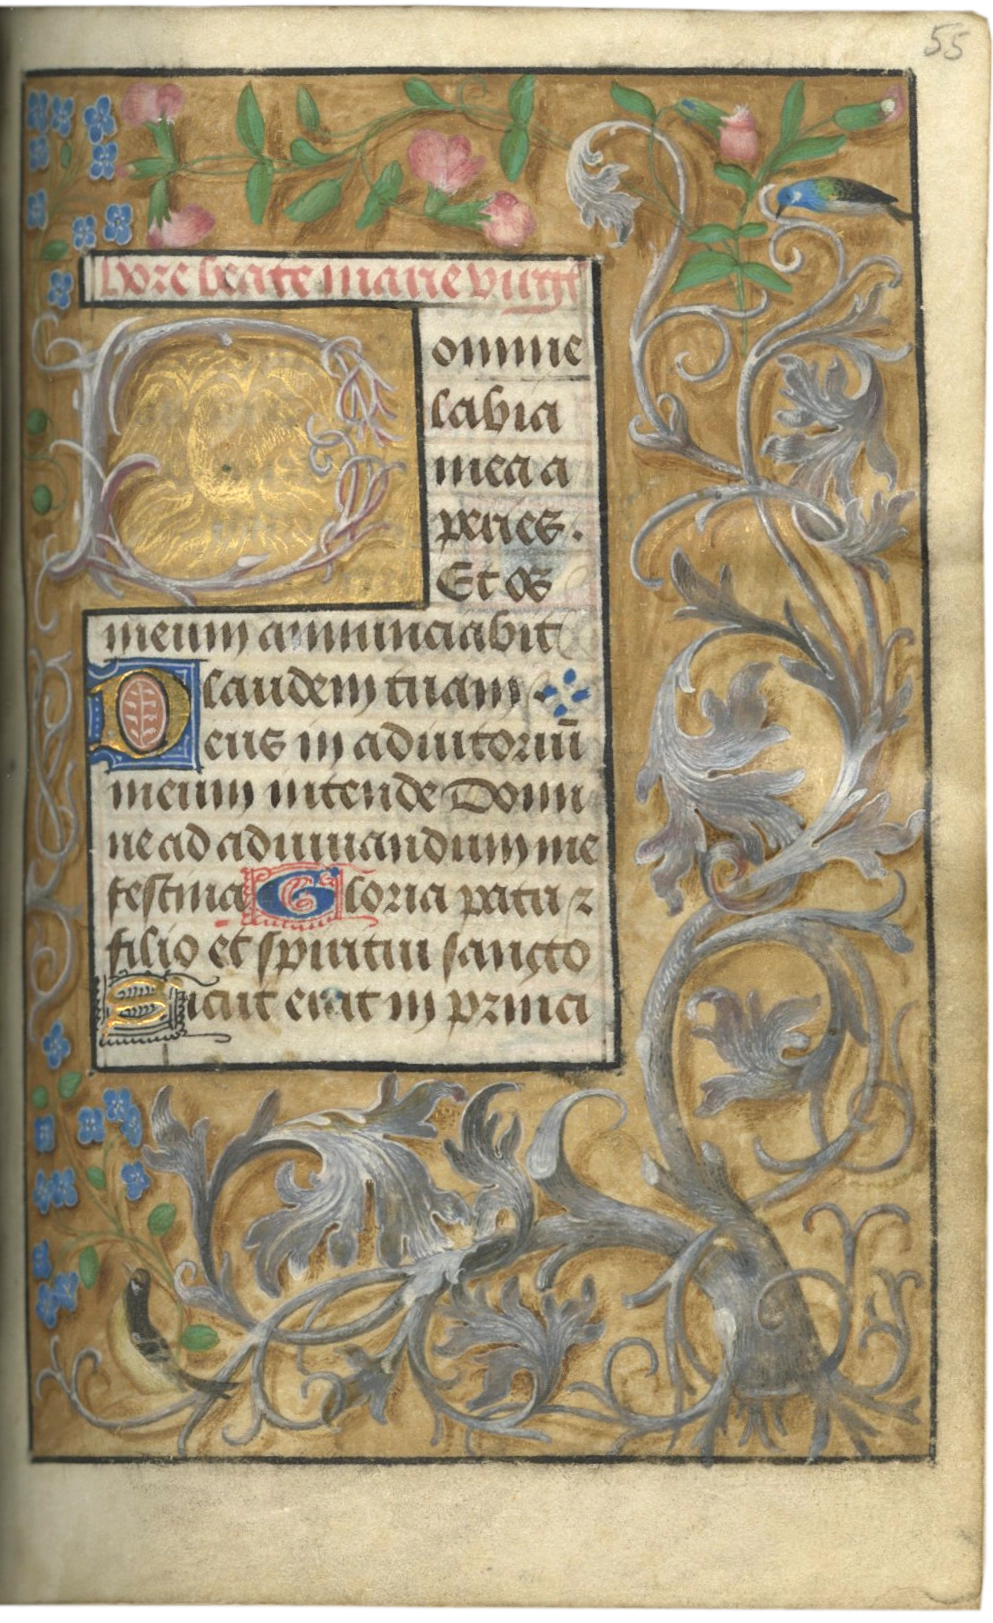 55
hore beate marie virgĩ
Domine
labia
mea a
peries.
Et os
meum annunciabit
laudem tuam
Deus in adiutoriũ
meum intende Domi
ne ad adiuuandum me
festina Gloria patri ⁊
filio et spiritui sancto
Sicut erat in princi